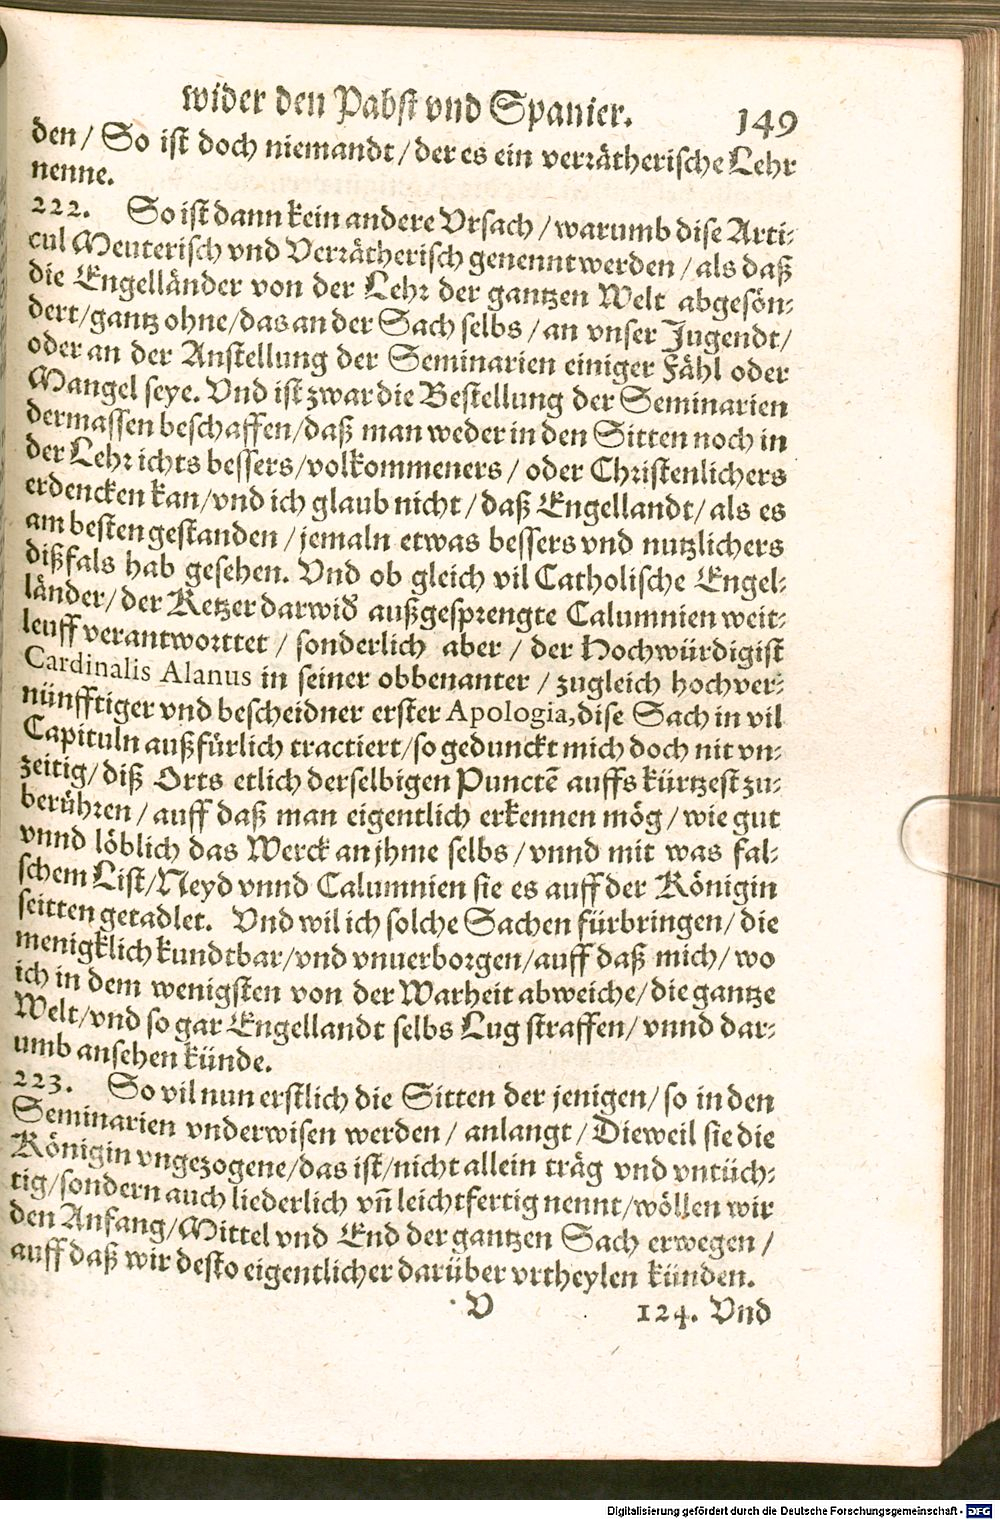 wider den Pabst vnd Spanier. 149
den/ So ist doch niemandt/ der es ein verrätherische Lehr
nenne.
222. So ist dann kein andere Vrsach/ warumb dise Arti-
cul Meuterisch vnd Verrätherisch genennt werden/ als daß
die Engelländer von der Lehr der gantzen Welt abgesön-
dert/ gantz ohne/ das an der Sach selbs/ an vnser Jugendt/
oder an der Anstellung der Seminarien einiger Fähl oder
Mangel seye. Vnd ist zwar die Bestellung der Seminarien
dermassen beschaffen/ daß man weder in den Sitten noch in
der Lehr ichts bessers/ volkommeners/ oder Christenlichers
erdencken kan/ vnd ich glaub nicht/ daß Engellandt/ als es
am besten gestanden/ jemaln etwas bessers vnd nutzlichers
dißfals hab gesehen. Vnd ob gleich vil Catholische Engel-
länder/ der Ketzer darwid' außgesprengte Calumnien weit-
leuff verantworttet/ sonderlich aber/ der Hochwürdigist
Cardinalis Alanus in seiner obbenanter/ zugleich hochver-
nünfftiger vnd bescheidner erster Apologia, dise Sach in vil
Capituln außfürlich tractiert/ so gedunckt mich doch nit vn-
zeitig/ diß Orts etlich derselbigen Punctē auffs kürtzest zu-
berühren/ auff daß man eigentlich erkennen mög/ wie gut
vnnd löblich das Werck an jhme selbs/ vnnd mit was fal-
schem List/ Neyd vnnd Calumnien sie es auff der Königin
seitten getadlet. Vnd wil ich solche Sachen fürbringen/ die
menigklich kundtbar/ vnd vnuerborgen/ auff daß mich/ wo
ich in dem wenigsten von der Warheit abweiche/ die gantze
Welt/ vnd so gar Engellandt selbs Lug straffen/ vnnd dar-
umb ansehen künde.
223. So vil nun erstlich die Sitten der jenigen/ so in den
Seminarien vnderwisen werden/ anlangt/ Dieweil sie die
Königin vngezogene/ das ist/ nicht allein träg vnd vntüch-
tig/ sondern auch liederlich vn̄ leichtfertig nennt/ wöllen wir
den Anfang/ Mittel vnd End der gantzen Sach erwegen/
auff daß wir desto eigentlicher darüber vrtheylen künden.
V 124. Vnd
Digitalisierung gefördert durch die Deutsche Forschungsgemeinschaft - DFG